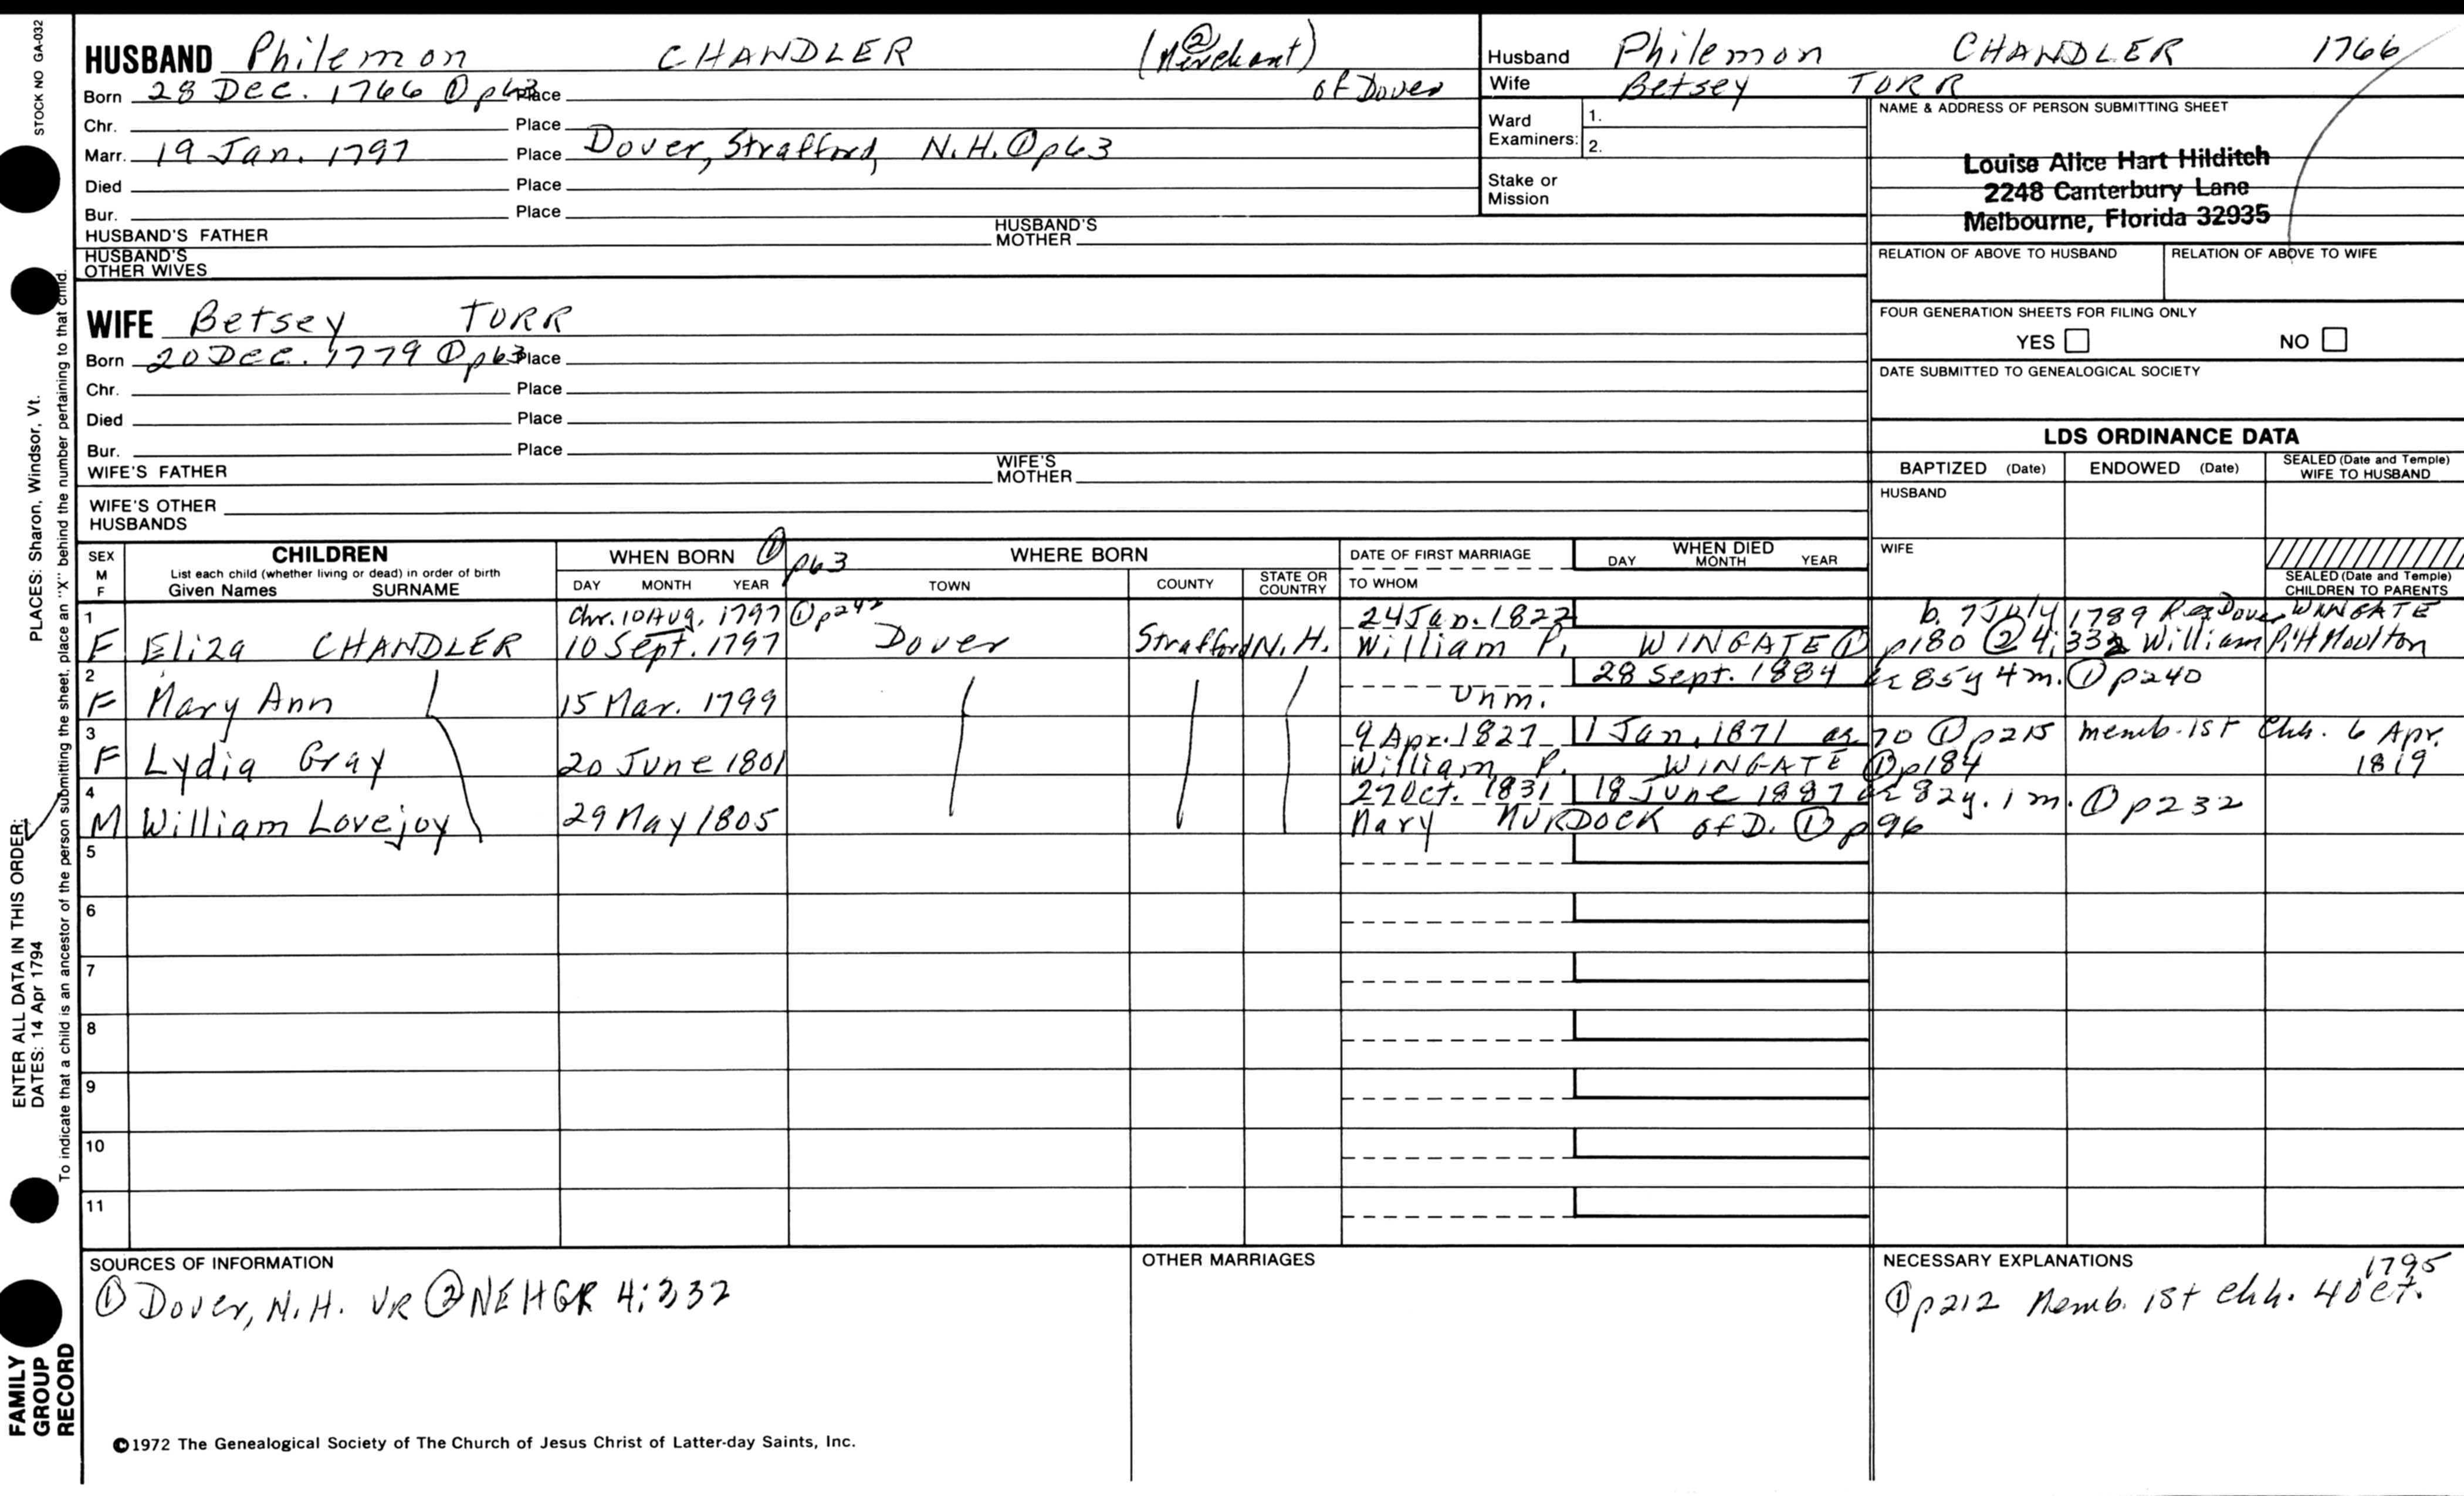 STOCK NO GA-032
HUSBAND Philemon CHANDLER (② Merchant)
Born 28 Dec. 1766 ① p63 Place of Dover
Chr. Place
Marr. 19 Jan. 1797 Place Dover, Strafford, N.H. ① p63
Died Place
Bur. Place
HUSBAND'S FATHER HUSBAND'S MOTHER
HUSBAND'S OTHER WIVES
WIFE Betsey TORR
Born 20 Dec. 1779 ① p63 Place
Chr. Place
Died Place
Bur. Place
WIFE'S FATHER WIFE'S MOTHER
WIFE'S OTHER HUSBANDS
Husband Philemon CHANDLER 1766
Wife Betsey TORR
Ward Examiners: 1.
2.
Stake or Mission
NAME & ADDRESS OF PERSON SUBMITTING SHEET
Louise Alice Hart Hilditch
2248 Canterbury Lane
Melbourne, Florida 32935
RELATION OF ABOVE TO HUSBAND RELATION OF ABOVE TO WIFE
FOUR GENERATION SHEETS FOR FILING ONLY
YES NO
DATE SUBMITTED TO GENEALOGICAL SOCIETY
LDS ORDINANCE DATA
BAPTIZED (Date) ENDOWED (Date) SEALED (Date and Temple) WIFE TO HUSBAND
HUSBAND
WIFE
SEALED (Date and Temple) CHILDREN TO PARENTS
SEX M F
CHILDREN
List each child (whether living or dead) in order of birth
Given Names SURNAME
WHEN BORN ① p63
DAY MONTH YEAR
WHERE BORN
TOWN COUNTY STATE OR COUNTRY
DATE OF FIRST MARRIAGE
TO WHOM
WHEN DIED
DAY MONTH YEAR
1 Chr. 10 Aug. 1797 ① p242 24 Jan. 1822 b. 7 July 1789 Rec Dover WINGATE
F Eliza CHANDLER 10 Sept. 1797 Dover Strafford N.H. William P. WINGATE ① p180 ② 4:332 William P. H Moulton
2 28 Sept. 1884 ae 85y 4m. ① p240
F Mary Ann 15 Mar. 1799 Unm.
3 9 Apr. 1827 1 Jan. 1871 ae 70 ① p215 memb. 1st Chh. 6 Apr. 1819
F Lydia Gray 20 June 1801 William P. WINGATE ① p184
4 27 Oct. 1831 18 June 1887 ae 82y. 1m. ① p232
M William Lovejoy 29 May 1805 Mary MURDOCK of D. ① p96
5
6
7
8
9
10
11
SOURCES OF INFORMATION
① Dover, N.H. VR ② NEHGR 4:332
OTHER MARRIAGES
NECESSARY EXPLANATIONS
① p212 Memb. 1st Chh. 4 Oct. 1795
©1972 The Genealogical Society of The Church of Jesus Christ of Latter-day Saints, Inc.
ENTER ALL DATA IN THIS ORDER:
DATES: 14 Apr 1794 PLACES: Sharon, Windsor, Vt.
To indicate that a child is an ancestor of the person submitting the sheet, place an "X" behind the number pertaining to that child.
FAMILY
GROUP
RECORD